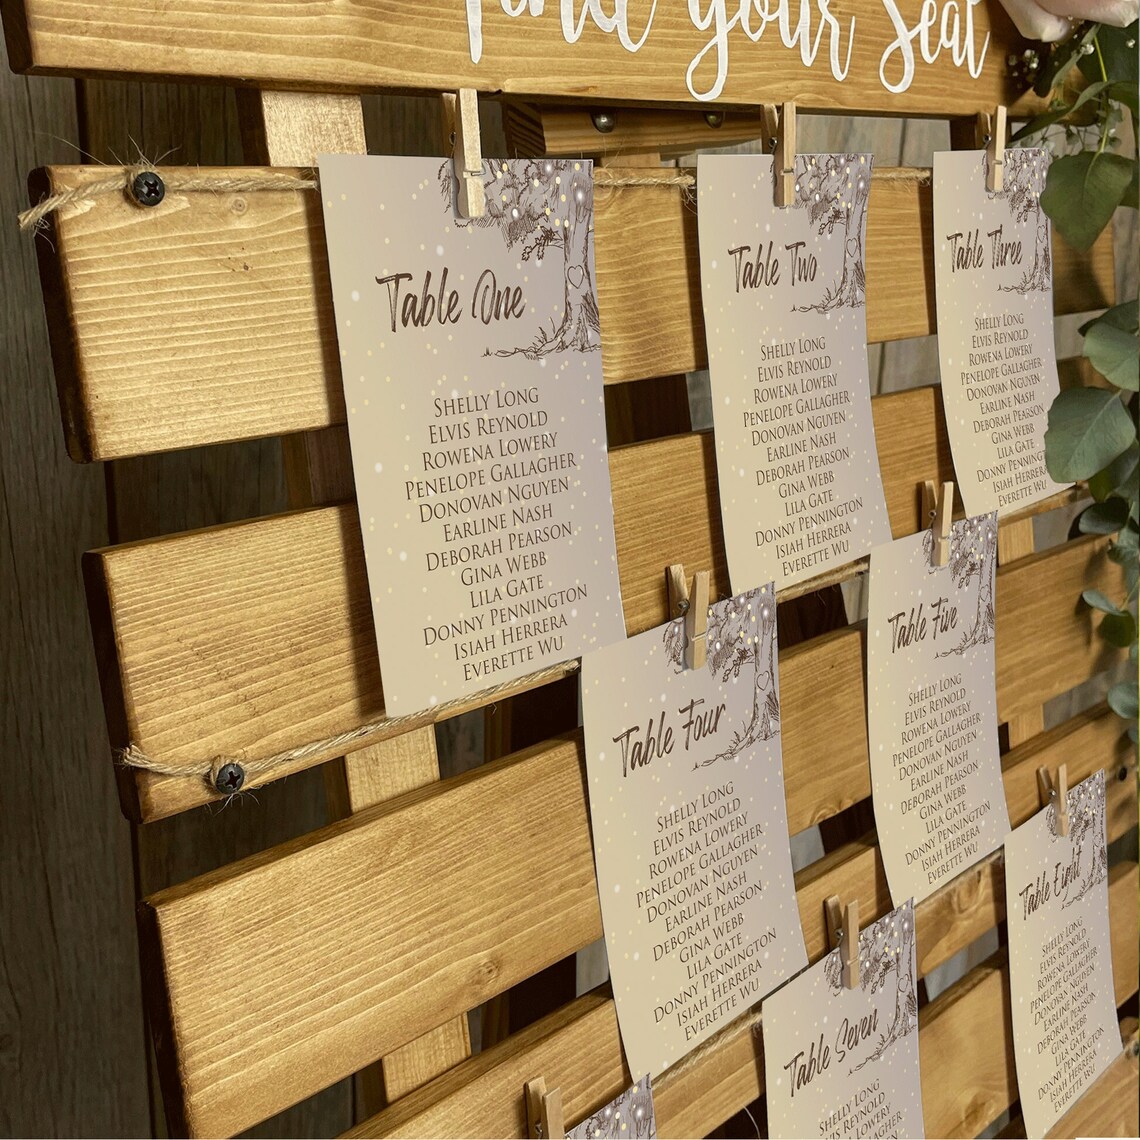 Find your Seat
Table One
Shelly Long
Elvis Reynold
Rowena Lowery
Penelope Gallagher
Donovan Nguyen
Earline Nash
Deborah Pearson
Gina Webb
Lila Gate
Donny Pennington
Isiah Herrera
Everette Wu
Table Two
Shelly Long
Elvis Reynold
Rowena Lowery
Penelope Gallagher
Donovan Nguyen
Earline Nash
Deborah Pearson
Gina Webb
Lila Gate
Donny Pennington
Isiah Herrera
Everette Wu
Table Three
Shelly Long
Elvis Reynold
Rowena Lowery
Penelope Gallagher
Donovan Nguyen
Earline Nash
Deborah Pearson
Gina Webb
Lila Gate
Donny Pennington
Isiah Herrera
Everette Wu
Table Four
Shelly Long
Elvis Reynold
Rowena Lowery
Penelope Gallagher
Donovan Nguyen
Earline Nash
Deborah Pearson
Gina Webb
Lila Gate
Donny Pennington
Isiah Herrera
Everette Wu
Table Five
Shelly Long
Elvis Reynold
Rowena Lowery
Penelope Gallagher
Donovan Nguyen
Earline Nash
Deborah Pearson
Gina Webb
Lila Gate
Donny Pennington
Isiah Herrera
Everette Wu
Table Seven
Shelly Long
Elvis Reynold
Rowena Lowery
Table Eight
Shelly Long
Elvis Reynold
Rowena Lowery
Penelope Gallagher
Donovan Nguyen
Earline Nash
Deborah Pearson
Gina Webb
Lila Gate
Donny Pennington
Isiah Herrera
Everette Wu